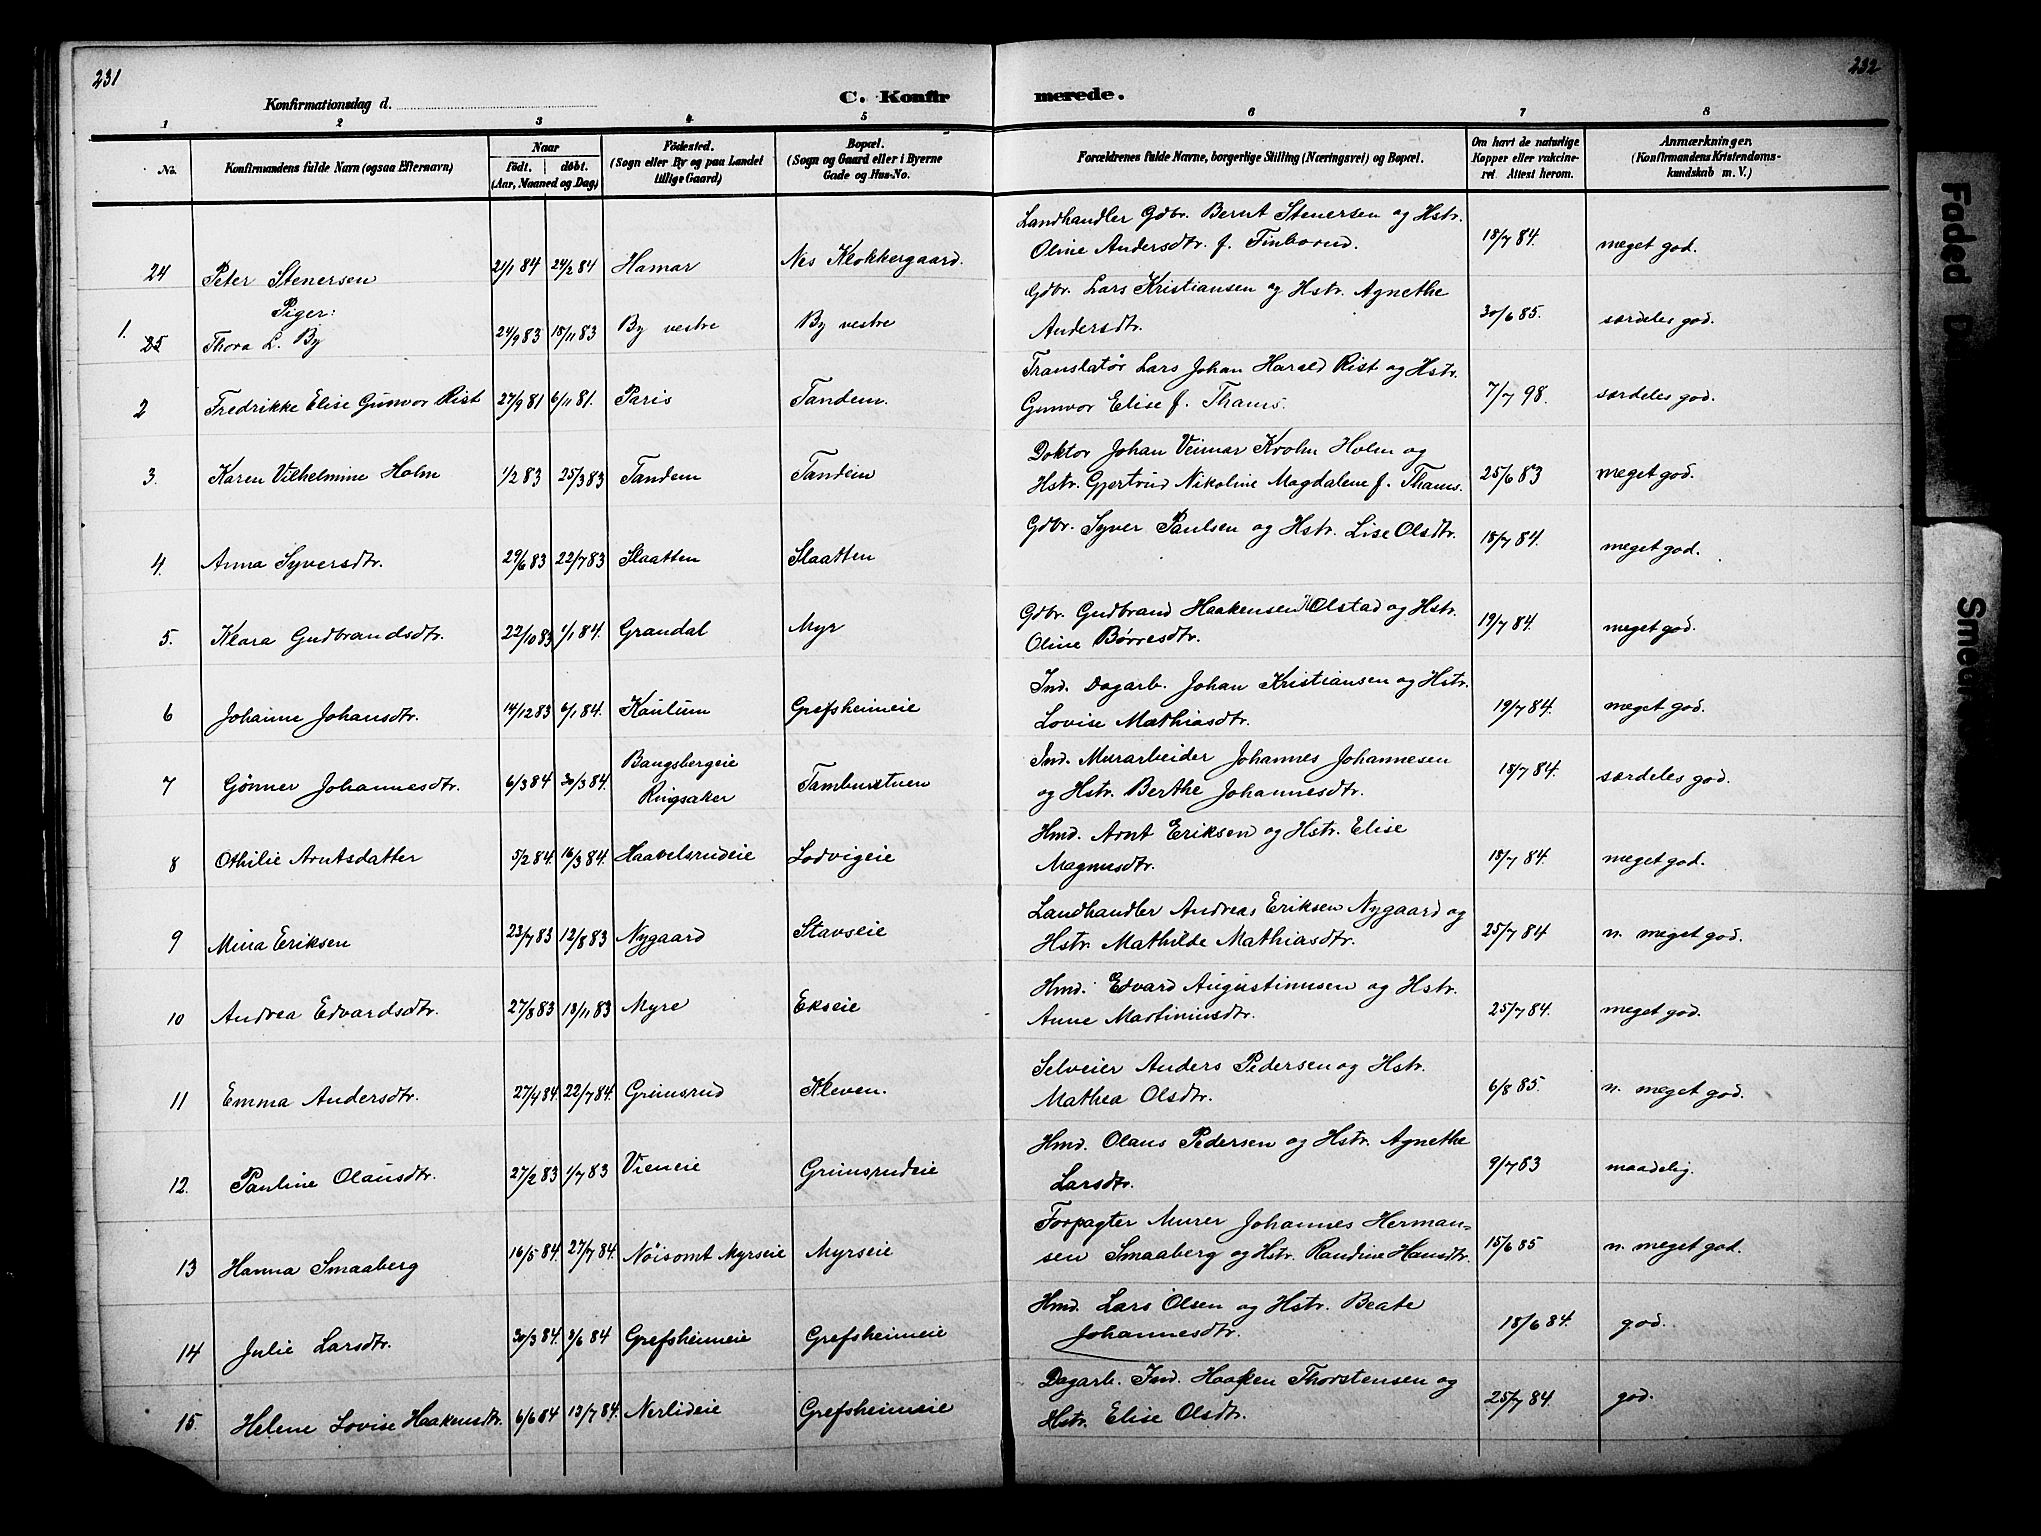 231
232
Konfirmationsdag d.
C. Konfirmerede.
1 2 3 4 5 6 7 8
No. Konfirmandens fulde Navn (ogsaa Efternavn) Naar Født. døbt. (Aar, Maaned og Dag) Fødested. (Sogn eller By og paa Landet tillige Gaard) Bopæl. (Sogn og Gaard eller i Byerne Gade og Hus-No. Forældrenes fulde Navne, borgerlige Stilling (Næringsvei) og Bopæl. Om havt de naturlige Kopper eller vakcineret. Attest herom. Anmærkninger. (Konfirmandens Kristendomskundskab m. V.)
24 Peter Stenersen 21/1 84 24/2 84 Hamar Nes Klokkergaard. Landhandler Gdbr. Bernt Stenersen og Hstr. 18/7 84. meget god.
Oline Andersdtr. f.
Piger:
1. 25 Thora L. By 24/9 83 18/11 83 By vestre By vestre Gdbr. Lars Kristiansen og Hstr. Agnethe 30/6 85. særdeles god.
Andersdtr.
2 Fredrikke Elise Gunvor Rist 27/9 81 6/11 81. Paris Tandem. Translatør Lars Johan Harald Rist og Hstr. 7/7 98. særdeles god.
Gunvor Elise f. Thams.
3. Karen Vilhelmine Holm 1/2 83 25/3 83 Tandem Tandem Doktor Johan Veimar Krohn Holm og 25/6 83 meget god.
Hstr. Gjertrud Nikoline Magdalene f. Thams.
4. Anna Syversdtr. 29/6 83 22/7 83 Slaatten Slaatten Gdbr. Syver Paulsen og Hstr. Lise Olsdtr. 18/7 84. meget god.
5. Klara Gudbrandsdtr. 22/10 83 1/1 84. Grandal Myr Gdbr. Gudbrand Haakensen Kolstad og Hstr. 19/7 84. meget god.
Oline Børresdtr.
6 Johanne Johansdtr. 14/12 83 6/1 84. Kaulum Grefsheimeie Ind. Dagarb. Johan Kristiansen og Hstr. 19/7 84. meget god.
Lovise Mathiasdtr.
7 Gønner Johannesdtr. 6/3 84 30/3 84. Bangsbergeie Ringsaker Tamburstuen Ind. Murarbeider Johannes Johannesen 18/7 84. særdeles god.
og Hstr. Berthe Johannesdtr.
8 Othilie Arntsdatter 5/2 84. 16/3 84. Haavelsrudeie Lodvigeie Hmd. Arnt Eriksen og Hstr. Elise 18/7 84. meget god.
Magnusdtr.
9 Mina Eriksen 23/7 83 12/8 83 Nygaard Stavseie Landhandler Andreas Eriksen Nygaard og 25/7 84 n. meget god.
Hstr. Mathilde Mathiasdtr.
10 Andrea Edvardsdtr. 27/8 83 18/11 83 Myre Ekseie Hmd. Edvard Augustinusen og Hstr. 25/7 84. meget god.
Anne Martiniusdtr.
11 Emma Andersdtr. 27/4 84. 22/7 84. Grimsrud Kleven. Selveier Anders Pedersen og Hstr. 6/8 85. n. meget god.
Mathea Olsdtr.
12. Pauline Olausdtr. 27/2 83 1/7 83 Vieneie Grimsrudeie Hmd. Olaus Pedersen og Hstr. Agnethe 9/7 83 maadelig.
Larsdtr.
13 Hanna Smaaberg 16/5 84. 27/7 84. Nöisomt Myrseie Myrseie Forpagter Murer Johannes Herman= 15/6 85 n. meget god.
sen Smaaberg og Hstr. Randine Hansdtr.
14 Julie Larsdtr. 30/3 84. 2/6 84 Grefsheimeie Grefsheimeie Hmd. Lars Olsen og Hstr. Beate 18/6 84. god.
Johannesdtr.
15. Helene Lovise Haakensdtr. 6/6 84 13/7 84. Nerlideie Grefsheimeie Dagarb. Ind. Haaken Thorstensen og 25/7 84. god.
Hstr. Elise Olsdtr.
Faded